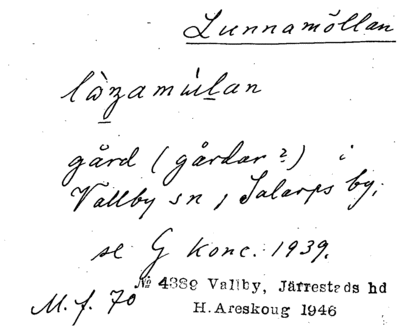 Lunnamöllan
gård (gårdar?) i
Vallby sn, Salarps by,
se G Konc. 1939.
№ 4389 Vallby, Järrestads hd
M.f. 70
H. Areskoug 1946